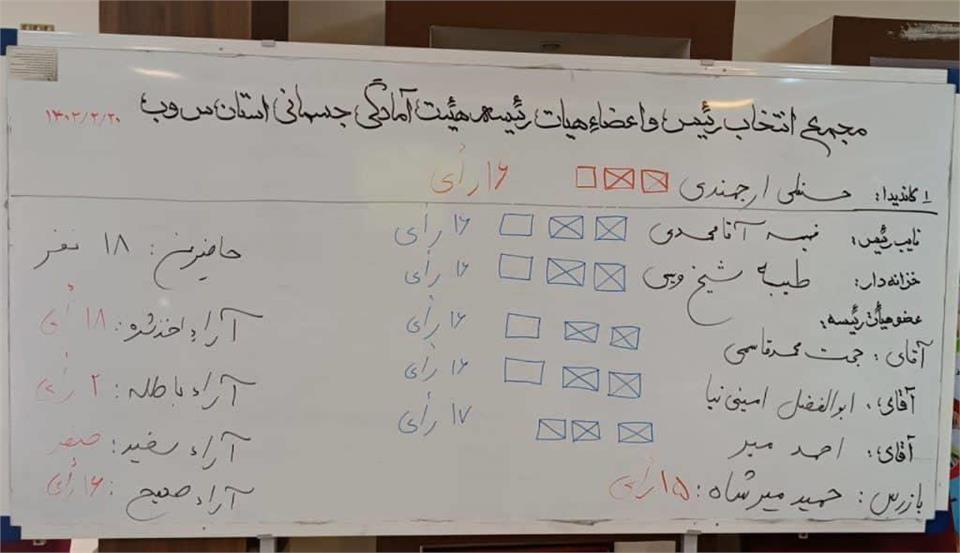 مجمع انتخاب رئیس و اعضاء هیات رئیسه هیئت آمادگی جسمانی استان س و ب
۱۴۰۲/۲/۲۰
۱ کاندیدا: ارجمندی ۱۶ رأی
نایب رئیس: آقامحمدی ۱۶ رأی
خزانه دار: طیبه شیخ ویسی ۱۶ رأی
عضو هیأت رئیسه:
۱۶ رأی
آقای: حجت محمدقاسمی
۱۶ رأی
آقای: ابوالفضل امینی نیا
۱۷ رأی
آقای: احمد میر
بازرس: حمید میرشاه: ۱۵ رأی
حاضرین: ۱۸ نفر
آراء اخذ شده: ۱۸ رأی
آراء باطله: ۲ رأی
آراء سفید: صفر
آراء صحیح: ۱۶ رأی